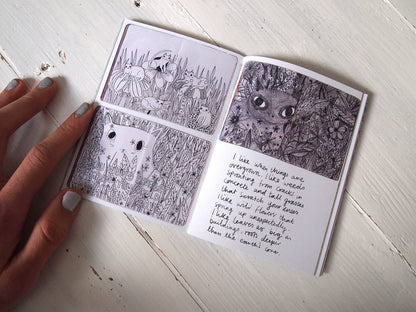 I like when things are
overgrown. I like weeds
sprouting from cracks in
concrete and tall grasses
that scratch your knees
I like wild flowers that
spring up unexpectedly.
I like leaves as big as
buildings, roots deeper
than the earth's core